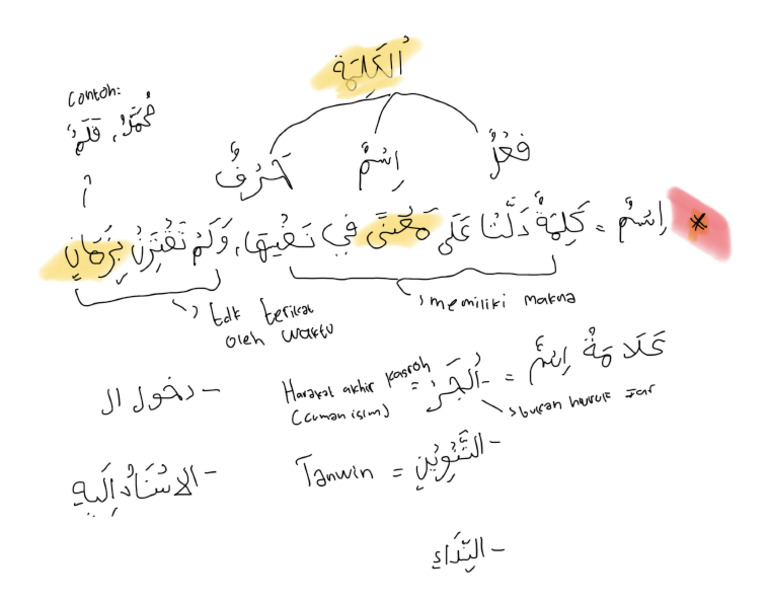 اَلْكَلِمَةِ
Contoh:
مُحَمَّدٌ، قَلَمٌ
فِعْلٌ
اِسْمٌ
حَرْفٌ
* اِسْمٌ = كَلِمَةٌ دَلَّتْ عَلَى مَعْنًى فِي نَفْسِهَا، وَلَمْ تَقْتَرِنْ بِزَمَانٍ
memiliki makna
tdk terikat
oleh waktu
عَلَامَةُ اِسْمٌ =
- اَلْجَرُّ = Harakat akhir kasroh
(cuman isim)
bukan huruf Jar
- التَّنْوِيْنِ = Tanwin
- النِّدَاءِ
- دخول ال
- الاسْنَادُ اِلَيْهِ